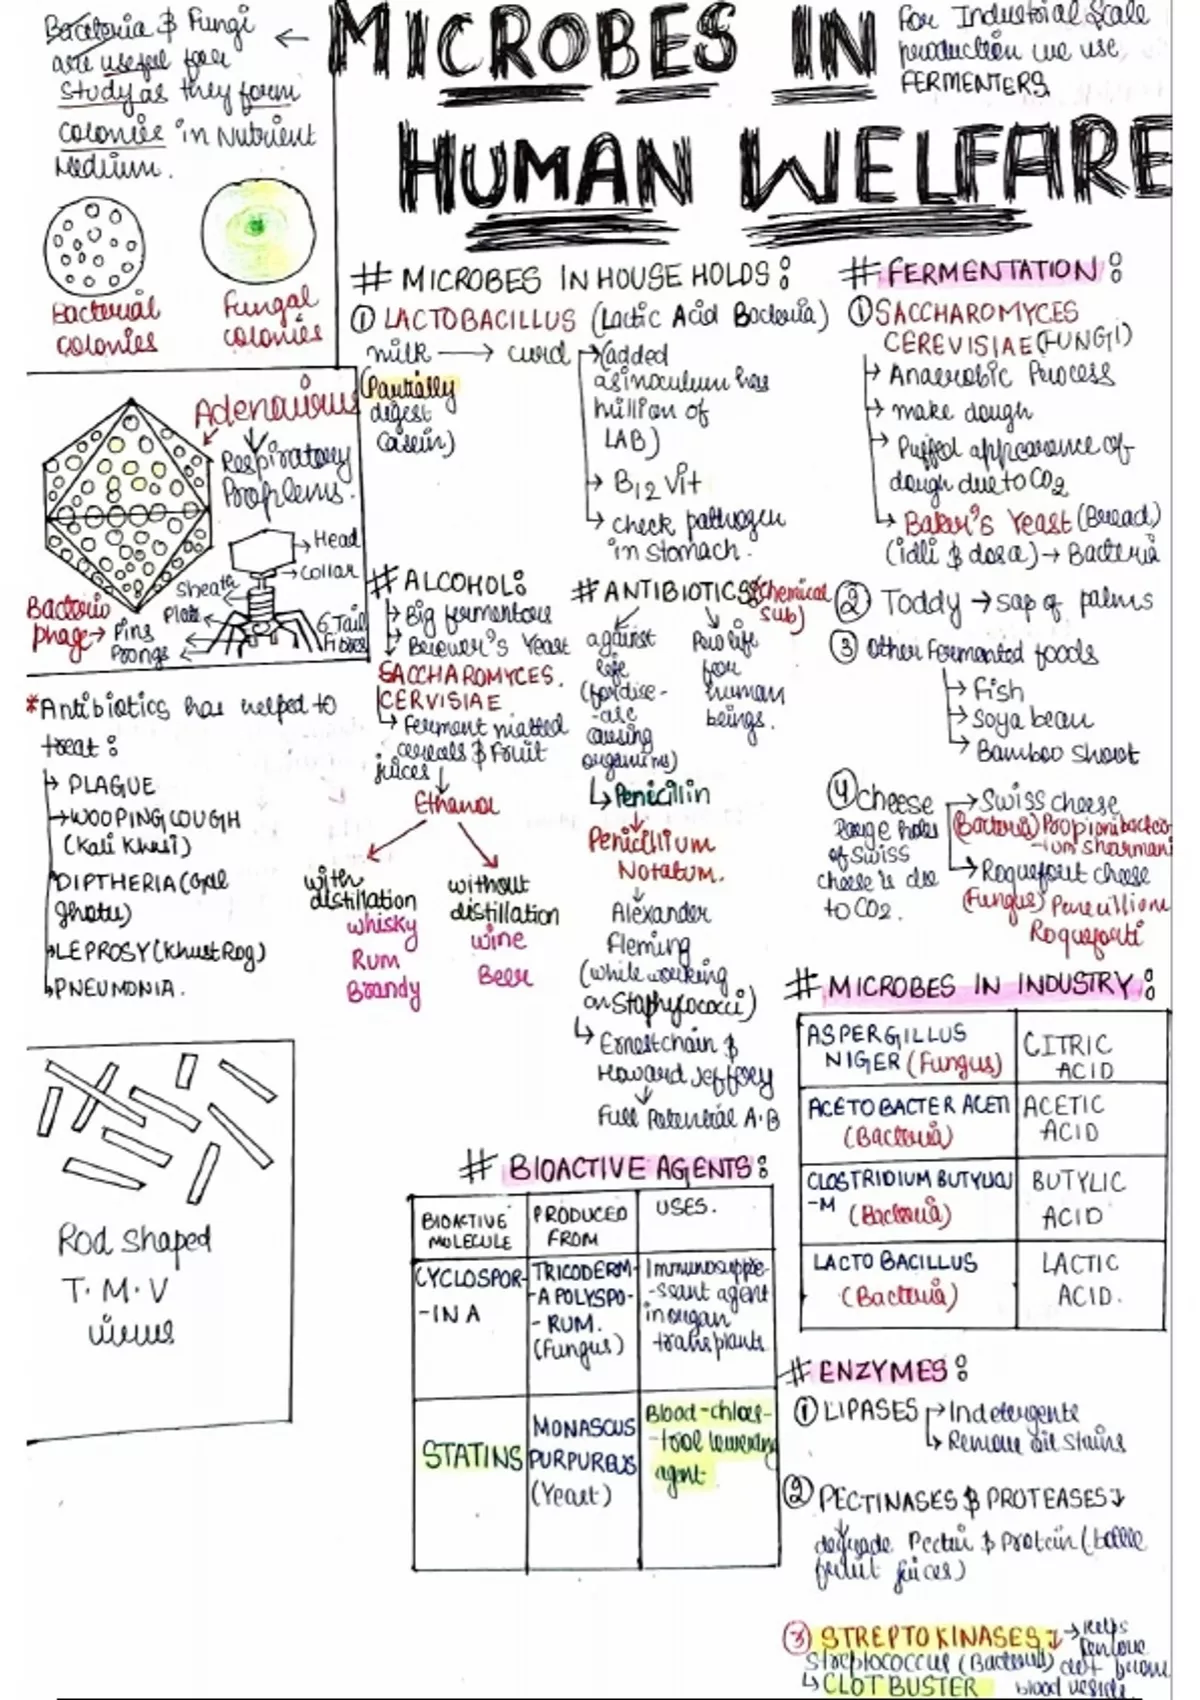 Bacteria & Fungi
are useful for
study as they form
colonies in Nutrient
Medium.
Bacterial
colonies
Fungal
colonies
MICROBES IN
HUMAN WELFARE
For Industrial Scale
production we use
FERMENTERS.
Adenovirus
Respiratory
Problems.
Head
Collar
Sheath
Plate
6 Tail
Fibres
Bacterio
phage
Pins
Prongs
*Antibiotics has helped to
treat :
PLAGUE
WOOPING COUGH
(Kali Khasi)
DIPTHERIA (Gal
Ghotu)
LEPROSY (Khust Rog)
PNEUMONIA.
Rod shaped
T.M.V
virus
# MICROBES IN HOUSE HOLDS :
① LACTOBACILLUS (Lactic Acid Bacteria)
milk → curd
(Partially
digest
casein)
(added
as inoculum has
million of
LAB)
→ B12 Vit
→ check pathogen
in stomach.
# ALCOHOL :
→ Big fermentors
→ Brewer's Yeast
SACCHAROMYCES.
CERVISIAE
→ Ferment malted
cereals & Fruit
juices
Ethanol
with
distillation
whisky
Rum
Brandy
without
distillation
wine
Beer
# ANTIBIOTICS (chemical
sub)
against
life
(for dise-
-ase
causing
organisms)
Pro life
for
human
beings.
→ Penicillin
Penicillium
Notatum.
Alexander
Fleming
(while working
on Staphylococci)
→ Ernest chain &
Howard Jeffory
Full Potential A.B
# FERMENTATION :
① SACCHAROMYCES
CEREVISIAE (FUNGI)
→ Anaerobic Process
→ make dough
→ Puffed appearance of
dough due to CO2
→ Baker's Yeast (Bread)
(idli & dosa) → Bacteria
② Toddy → sap of palms
③ Other Fermented foods
→ Fish
→ Soya bean
→ Bamboo Shoot
④ cheese
holes
of Swiss
cheese is due
to CO2.
→ Swiss cheese
(Bacteria) Propionibacter-
-ium sharmani
→ Roquefort cheese
(Fungus)
Roqueforti
# MICROBES IN INDUSTRY :
ASPERGILLUS
NIGER (Fungus)
CITRIC
ACID
ACETO BACTER ACETI
(Bacteria)
ACETIC
ACID
CLOSTRIDIUM BUTYLICU
-M (Bacteria)
BUTYLIC
ACID
LACTO BACILLUS
(Bacteria)
LACTIC
ACID.
# BIOACTIVE AGENTS :
BIOACTIVE
MOLECULE
PRODUCED
FROM
USES.
CYCLOSPOR-
-IN A
TRICODERM-
-A POLYSPO-
-RUM.
(Fungus)
Immunosuppre-
-ssant agent
in organ
transplants
STATINS
MONASCUS
PURPUREUS
(Yeast)
Blood-choles-
-trol lowering
agent.
# ENZYMES :
① LIPASES → In detergents
→ Remove oil stains
② PECTINASES & PROTEASES
degrade Pectin & Protein (bottle
fruit juices)
③ STREPTOKINASES → Helps
Remove
Streptococcus (Bacteria) clot from
→ CLOT BUSTER blood vessels.